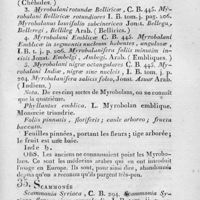 (Chébules.)
3. Myrobalani rotundæ Belliricæ, C. B. 445. My-
robalani Belliricæ rotundiores I. B. tom. j. pag. 206.
Myrobalanus bourfadin subcinericea Jonst. Bellegu,
Bellergi, Bellileg Arab. (Bellirics.)
4. Myrobalani Emblicæ C. B. 445. Myrobalani
Emblicæ in segmenta nucleum habentes, angulosæ,
I. B. t. j. p. 206. Myrobalanifera foliis minutim in-
cisis Jonst. Embelgi, Ambegi Arab. (Emblique.)
5. Myrobalani nigræ octangulares C. B. 445. My-
robalani Indicæ, nigræ sine nucleis, I. B. tom. j. p.
204. Myrobalanifera salicis folio, Jonst. Asuar Arab.
(Indiens.)
Nota. De ces cinq sortes de Myrobolans, on ne con-
noît que la quatrième.
Phyllantus emblica. L. Myrobolan emblique.
Monœcie triandrie.
Foliis pinnatis, floriferis; caule arboreo; fructu
baccato.
Feuilles pinnées, portant les fleurs; tige arborée;
le fruit est une baie.
Inde ♄.
OBS. Les anciens ne connoissoient point les Myrobo-
lans. Ce sont les médecins arabes qui en ont introduit
l'usage en Europe. Ils sont, pour ainsi dire, abandonnés
depuis qu'on a reconnu qu'ils purgent très-peu.
35. SCAMMONÉE
Scammonia Syriaca, C. B. 294. Scammonia Sy-